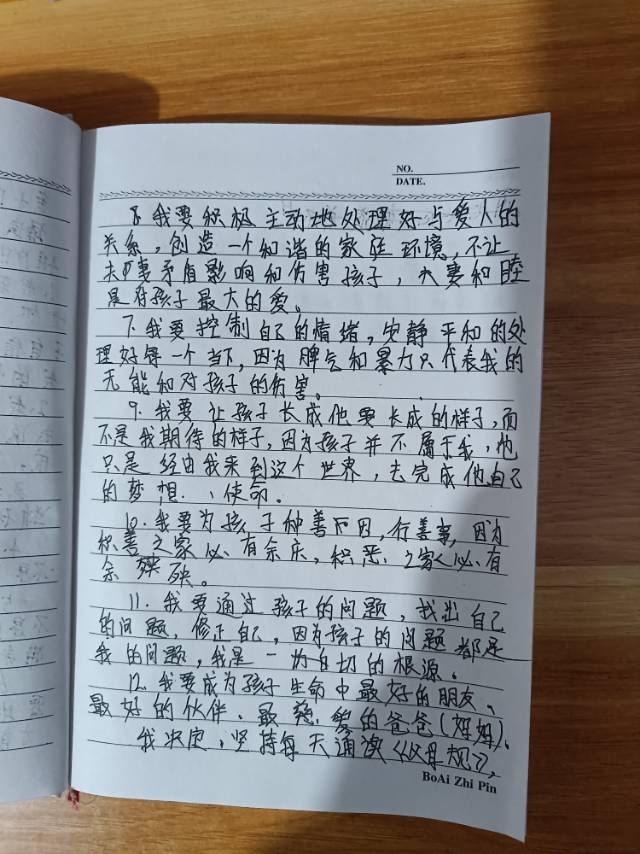 NO.
DATE.
8. 我要积极主动地处理好与爱人的
关系，创造一个和谐的家庭环境，不让
夫妻矛盾影响和伤害孩子，夫妻和睦
是对孩子最大的爱。
7. 我要控制自己的情绪，安静平和的处
理好每一个当下，因为脾气和暴力只代表我的
无能和对孩子的伤害。
9. 我要让孩子长成他要长成的样子，而
不是我期待的样子，因为孩子并不属于我，他
只是经由我来到这个世界，去完成他自己
的梦想、使命。
10. 我要为孩子种善下因，行善事，因为
积善之家必有余庆，积恶之家必有
余殃。
11. 我要通过孩子的问题，找出自己
的问题，修正自己，因为孩子的问题都是
我的问题，我是一切的根源。
12. 我要成为孩子生命中最好的朋友、
最好的伙伴、最慈爱的爸爸（妈妈）。
我决定，坚持每天诵读《父母规》，
BoAi Zhi Pin